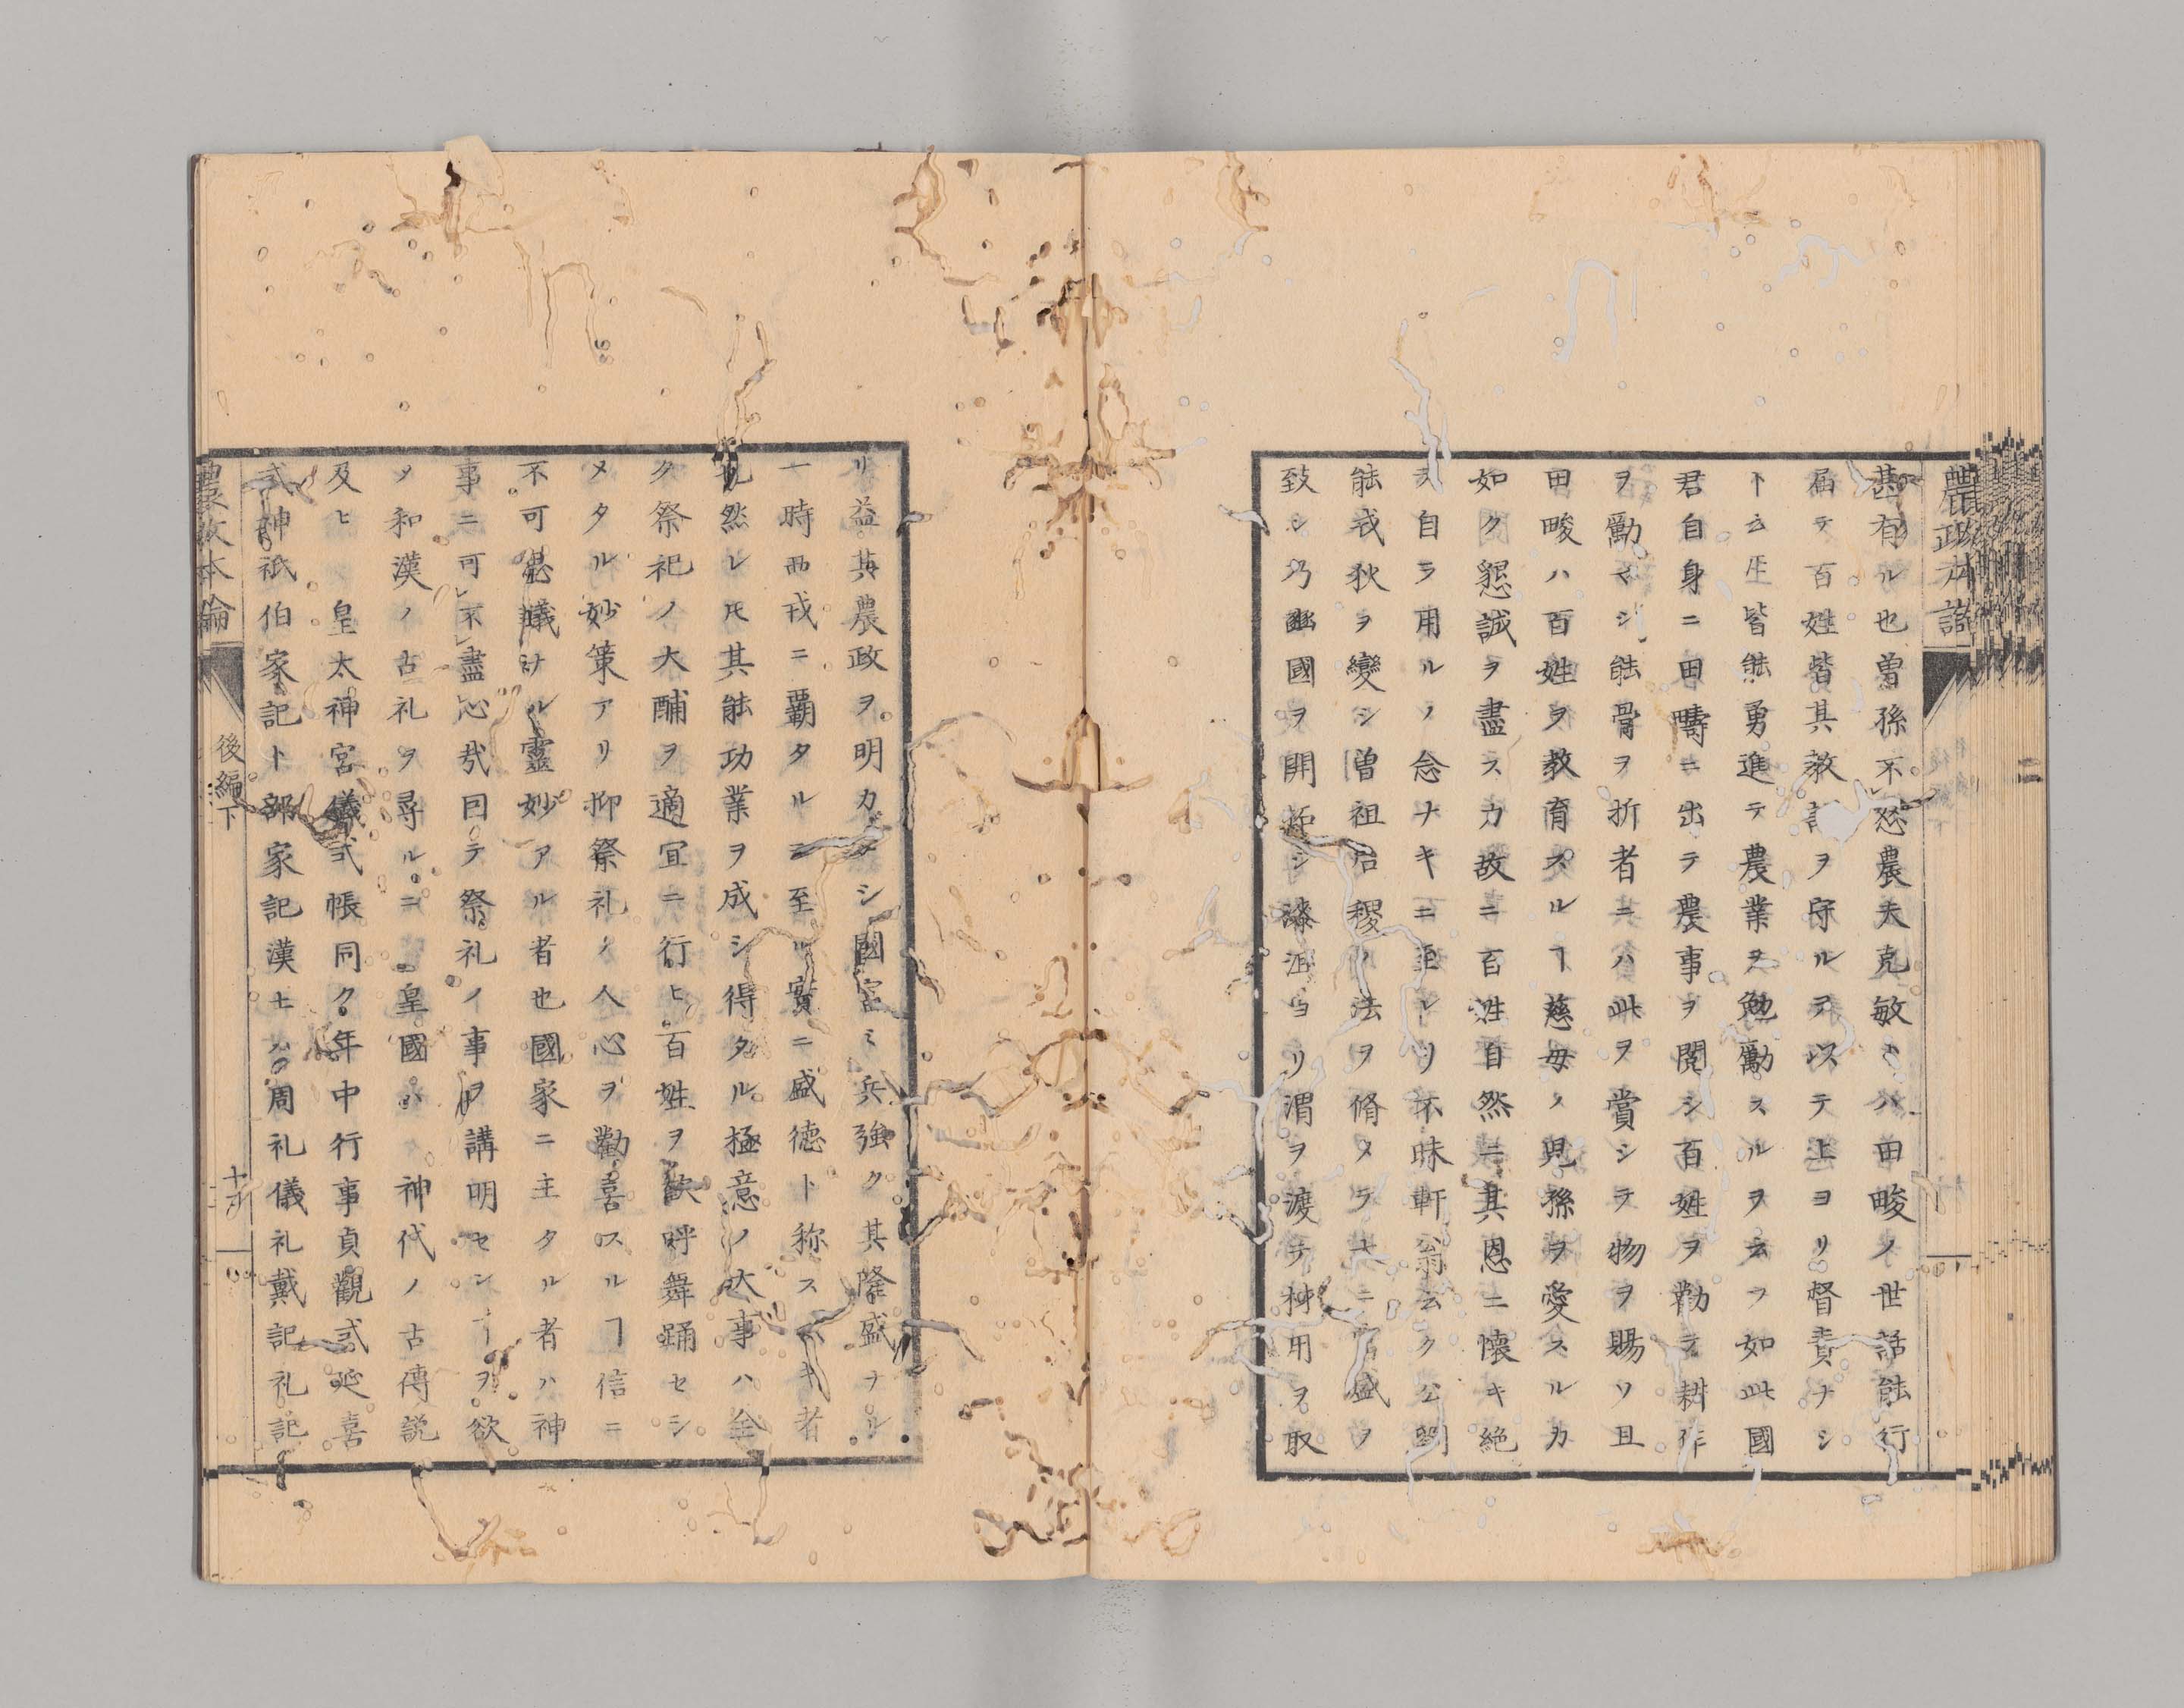 甚有ル也曽孫不怒農夫克敏トハ田畯ノ世話能行
届テ百姓皆其教ヲ守ルヲ以テ上ヨリ督責ナシ
ト云𪜈皆能勇進テ農業ヲ勉勵スルヲ云フ如此國
君自身ニ田疇ニ出テ農事ヲ閲シ百姓ヲ勸テ耕作
ヲ勵マシ能骨ヲ折者ニハ此ヲ賞シテ物ヲ賜ソ且
田畯ハ百姓ヲ教育スルヿ慈母ノ児孫ヲ愛スルカ
如ク懇誠ヲ盡スカ故ニ百姓自然ニ其恩ニ懐キ絶
ヘ自ラ用ルノ念ナキニ至レリ不昧軒翁云ク公劉
能戎狄ヲ變シ曽祖后稷ノ法ヲ脩メテ大ニ富盛ヲ
致シ乃豳國ヲ開拓シ漆沮ヨリ渭ヲ渡テ材用ヲ取
リ益其農政ヲ明カメシ國富ミ兵強ク其隆盛ナル
一時西戎ニ覇タルニ至ル實ニ盛徳ト称スヘキ者
也然レ𪜈其能功業ヲ成シ得タル極意ノ大事ハ全
ク祭祀ノ大酺ヲ適冝ニ行ヒ百姓ヲ歓呼舞踊セシ
メタル妙策アリ抑祭礼ノ人心ヲ勸喜スルヿ信ニ
不可思議ナル靈妙アル者也國家ニ主タル者ハ神
事ニ可不盡心哉因テ祭礼ノ事ヲ講明センヿヲ欲
メ和漢ノ古礼ヲ尋ルニ皇國ハ神代ノ古傳説
及ヒ皇太神宮儀式帳同ク年中行事貞觀式延喜
式神祇伯家記卜部家記漢土ハ周礼儀礼戴記礼記
農政本論
後編下